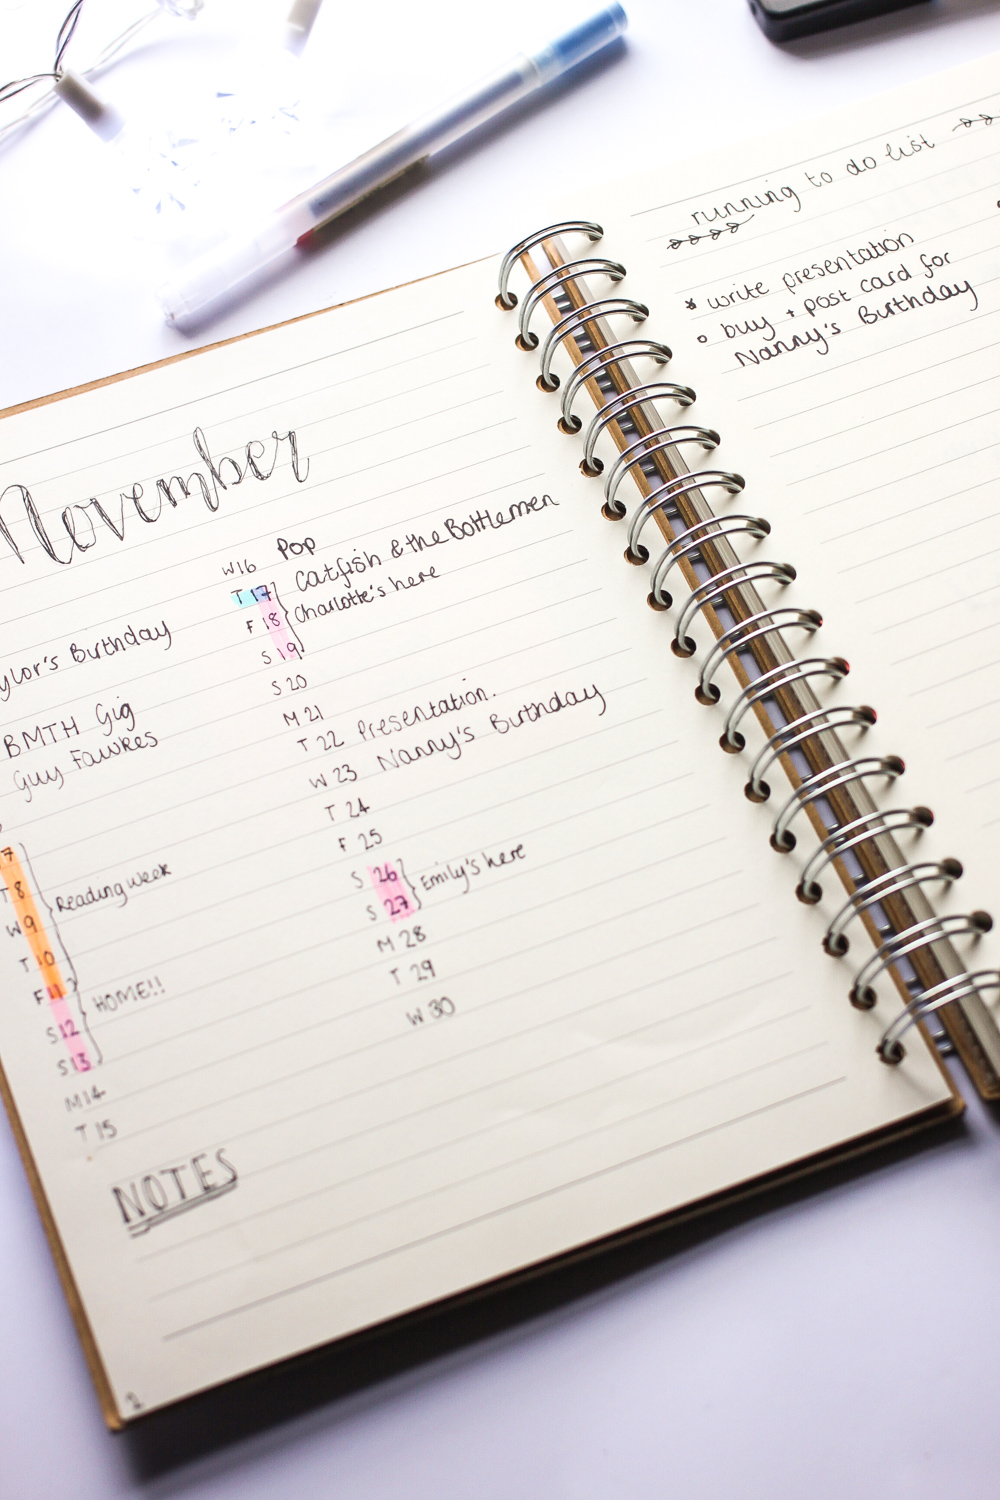 November
ylor's Birthday
BMTH Gig
Guy Fawkes
7
T 8
W 9 Reading week
T 10
F 11
S 12 HOME!!
S 13
M 14
T 15
W 16 Pop
T 17 Catfish & the Bottlemen
F 18 Charlotte's here
S 19
S 20
M 21
T 22 Presentation.
W 23 Nanny's Birthday
T 24
F 25
S 26 Emily's here
S 27
M 28
T 29
W 30
NOTES
2
running to do list
* write presentation
o buy + post card for
Nanny's Birthday